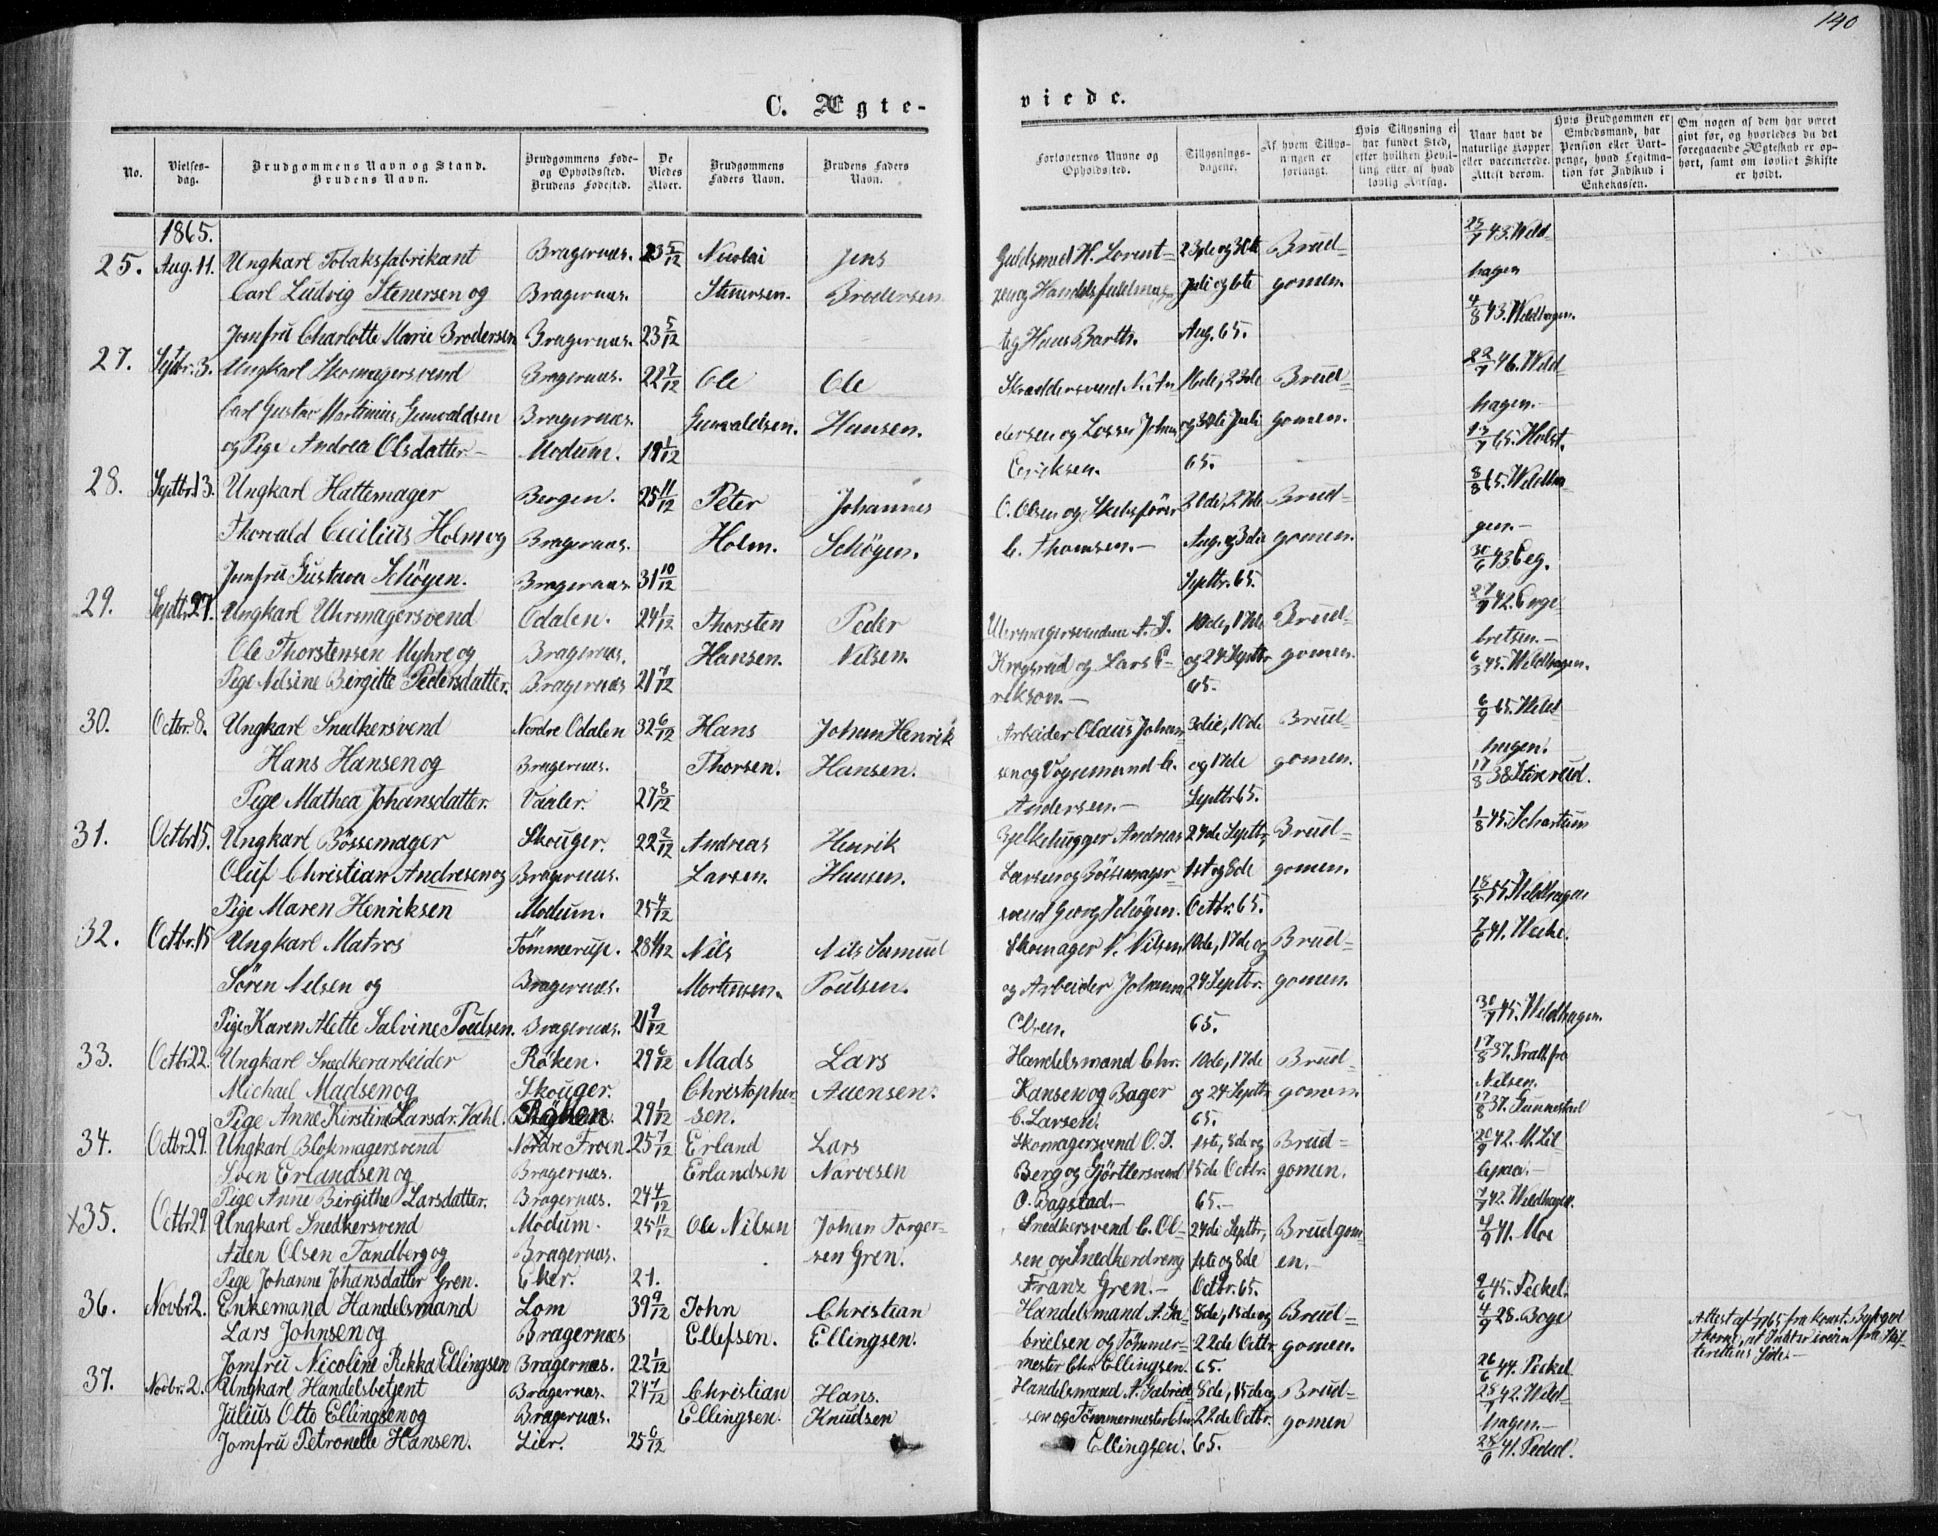 140
C. Ægte-
viede.
No.
Vielses-
dag.
Brudgommens Navn og Stand.
Brudens Navn.
Brudgommens Føde-
og Opholdssted.
Brudens Fødested.
De
Viedes
Alder.
Brudgommens
Faders Navn.
Brudens Faders
Navn.
Forlovernes Navne og
Opholdssted.
Tillysnings-
dagene.
Af hvem Tillys-
ningen er
forlangt.
Hvis Tillysning ei
har fundet Sted,
efter hvilken Bevil-
ling eller af hvad
lovlig Aarsag.
Naar havt de
naturlige Kopper
eller vaccinerede.
Attest derom.
Hvis Brudgommen er
Embedsmand, har
Pension eller Vart-
penge, hvad Legitima-
tion for Indskud i
Enkekassen.
Om nogen af dem har været
gift før, og hvorledes da det
foregaaende Ægteskab er op-
hørt, samt om lovligt Skifte
er holdt.
1865.
25. Aug. 11. Ungkarl Tobaksfabrikant Bragernæs. 23 5/12 Nicolai Jens Guldsmed H. Lorent- 23de og 30te Brud- 25/7 43. Weld-
Carl Ludvig Stenersen og Bragernæs. Stenersen. Brodersen zen og Juli og 6te gomen. hagen
Jomfru Charlotte Marie Brodersen Bragernæs. 23 5/12 tig Hans Barth. Aug. 65. 4/8 43. Weldhagen.
27. Septbr. 3. Ungkarl Skomagersvend Bragernæs. 22 7/12 Ole Ole Skræddersvend N. An 16de, 23de Brud- 22/7 46. Weld-
Carl Gustav Martinius Gunvaldsen Bragernæs. Gunvaldsen. Hansen. dersen og Losser Johan og 30te Juli gomen. hagen.
og Pige Andrea Olsdatter.- Modum. 19 1/12 Ericksen. 65. 13/7 65. Holst.
28. Septbr. 13. Ungkarl Hattemager Bergen. 25 11/12 Peter Johannes O. Olsen og Skibsfører 20de, 27de Brud- 8/8 65. Weldha-
Thorvald Cecilius Holm og Bragernæs. Holm. Schøgen. C. Thomsen.- Aug. og 3die gomen. gen.-
Jomfru Gustava Schøgen. Bragernæs. 31 10/12 Septbr. 65. 30/6 43. Eeg.
29. Septbr. 27. Ungkarl Uhrmagersvend Odalen. 24 1/12 Thorsten Peder Uhrmagersvendene A. S. 10de, 17de Brud- 27/9 42. Enge
Ole Thorstensen Myhre og Bragernæs. Hansen. Nilsen. Krogsrud og Lars E- og 24 Septbr gomen. bretsen.-
Pige Nelsine Birgitte Pedersdatter. Bragernæs 21 7/12 rikson.- 65. 6/3 45. Weldhagen.
30. Octbr. 8. Ungkarl Snedkersvend Nordre Odalen 32 6/12 Hans Johan Henrik Arbeider Olaus Johan 3die, 10de Brud- 6/9 65. Weld
Hans Hansen og Bragernæs. Thorsen. Hansen. sen og Vognmand C. og 17de gomen. hagen.
Pige Mathea Johansdatter. Vaaler. 27 8/12 Andersen.- Septbr 65. 17/8 38 Stenerud.
31. Octbr. 15. Ungkarl Bössemager Skouger. 22 2/12 Andreas Henrik Bjelkehugger Andreas 24de Septbr, Brud- 1/8 45. Schartum
Oluf Christian Andresen og Bragernæs. Larsen. Hansen. Larsen og Bössemager- 1st og 8de gomen.
Pige Maren Henriksen Modum. 25 4/12 svend Georg Schøgen. Octbr. 65. 18/5 55. Weldhagen
32. Octbr. 15 Ungkarl Matros Tømmerup. 28 11/12 Nils Nils Samuel Skomager N. Nilsen 10de, 17de og Brud-
Søren Nelsen og Bragernæs. Mortensen. Poulsen. og Arbeider Johannes 24 Septbr. gomen.
Pige Karen Mette Salvine Poulsen. Bragernæs. 21 9/12 Olsen. 65. 30/7 45. Weldhagen.
33. Octbr 22. Ungkarl Snedkerarbeider Røken. 29 6/12 Mads Lars Handelsmand Chr. 10de, 17de Brud- 17/8 37. Prall. fra
Michael Madsen og Skouger. Christopher Auensen. Hansen og Bager og 24 Septbr gomen. Nilsen.
Pige Anne Kirstine Larsdr. Vahl. Röken 29 1/12 sen. C. Larsen. 65. 17/8 37. Gunnestad
34. Octbr. 29. Ungkarl Blokmagersvend Nordre Froen. 25 7/12 Erland Lars Skomagersvend O. J. 1ste, 8de og Brud- 20/9 42. M. Lil
Sven Erlandsen og Bragernæs. Erlandsen Narvesen Berg og Gjørtlersvend 15de Octbr. gomen.
Pige Anne Birgithe Larsdatter. Bragernæs. 24 4/12 O. Bagstad.- 65.- 7/7 42. Weldhagen.
x35. Octbr 29. Ungkarl Snedkersvend Modum. 25 11/12 Ole Nilsen Johan Torger- Snedkersvend C. Ol- 24de Septbr, Brudgom- 4/9 41. Moe
Aden Olsen Tandberg og Bragernæs. sen Gren. sen og Snedkerdreng 1ste og 8de en.-
Pige Johanne Johansdatter Gren. Eker. 21. Franz Gren.- Octbr. 65. 9/6 45. Peckel.
36. Novbr 2. Enkemand Handelsmand Lom 39 9/12 John Christian Handelsmand A. Ga- 8de, 15de og Brud- 4/9 28. Boge Attest af
Lars Johnsen og Bragernæs Ellefsen. Ellingsen. brielsen og Tømmer- 22de Octbr gomen.
Jomfru Nicoline Rikka Ellingsen Bragernæs. 22 1/12 mester Chr. Ellingsen. 65. 26/6 44. Peckel
37. Novbr. 2. Ungkarl Handelsbetjent Bragernæs. 27 7/12 Christian Hans. Handelsmand A. Gabriel 8de, 15de og Brud- 25/7 42. Weld-
Julius Otto Ellingsen og Bragernæs. Ellingsen. Knudsen sen og Tømmermester Chr. 22de Octbr. gomen hagen.-
Jomfru Petronelle Hansen. Lier. 25 6/12 Ellingsen. 65. 28/6 41. Peckel.